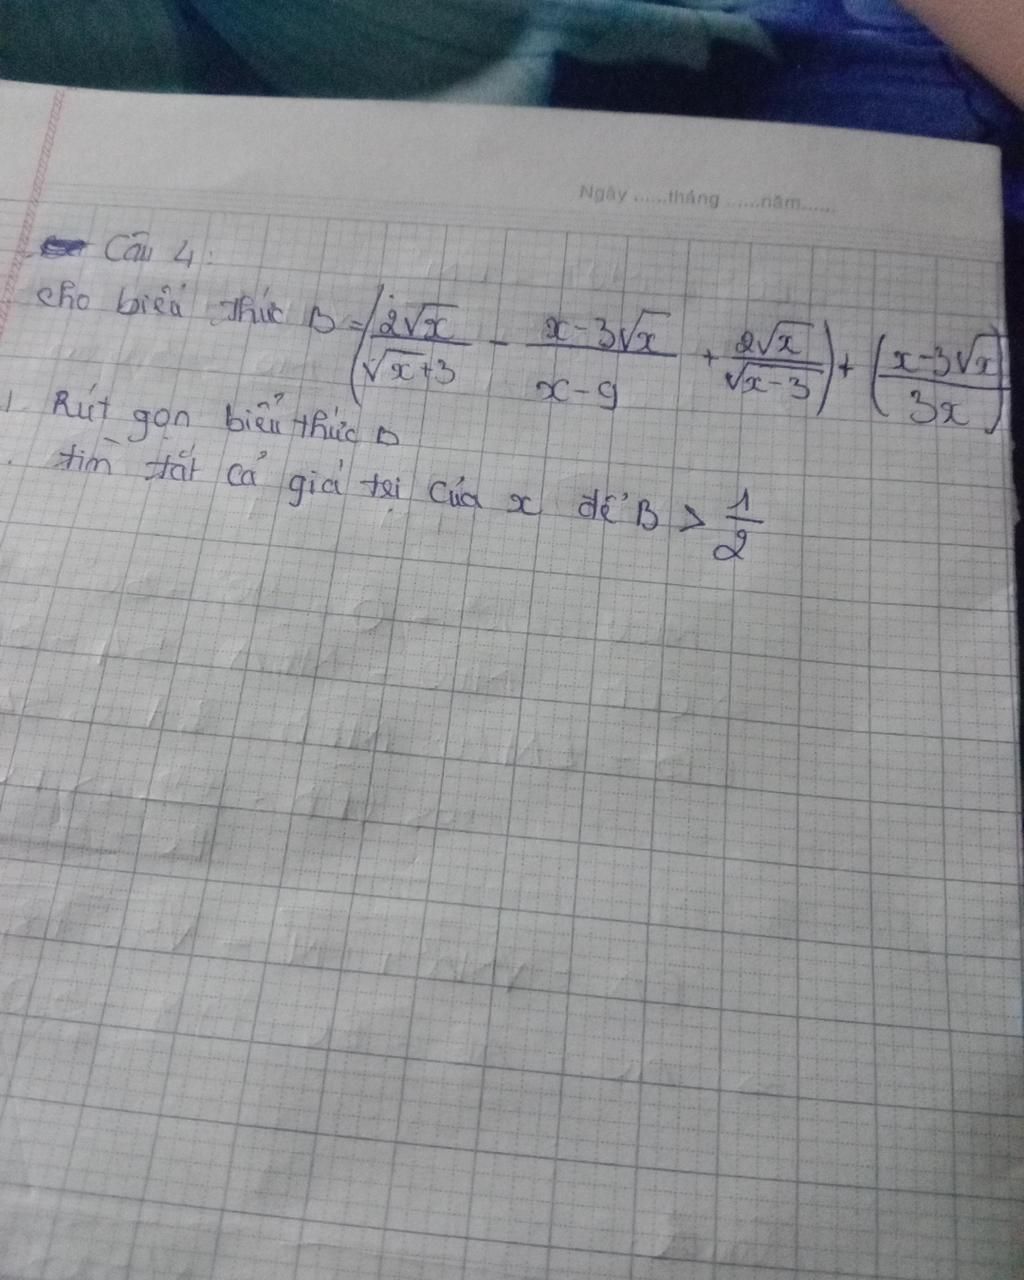 Ngày ......tháng ......năm......
Câu 4:
cho biểu thức B = (2√x/(√x+3) - (x-3√x)/(x-9) + 2√x/(√x-3)) + ((x-3√x)/3x)
1. Rút gọn biểu thức B
. tìm tất cả giá trị của x để B > 1/2